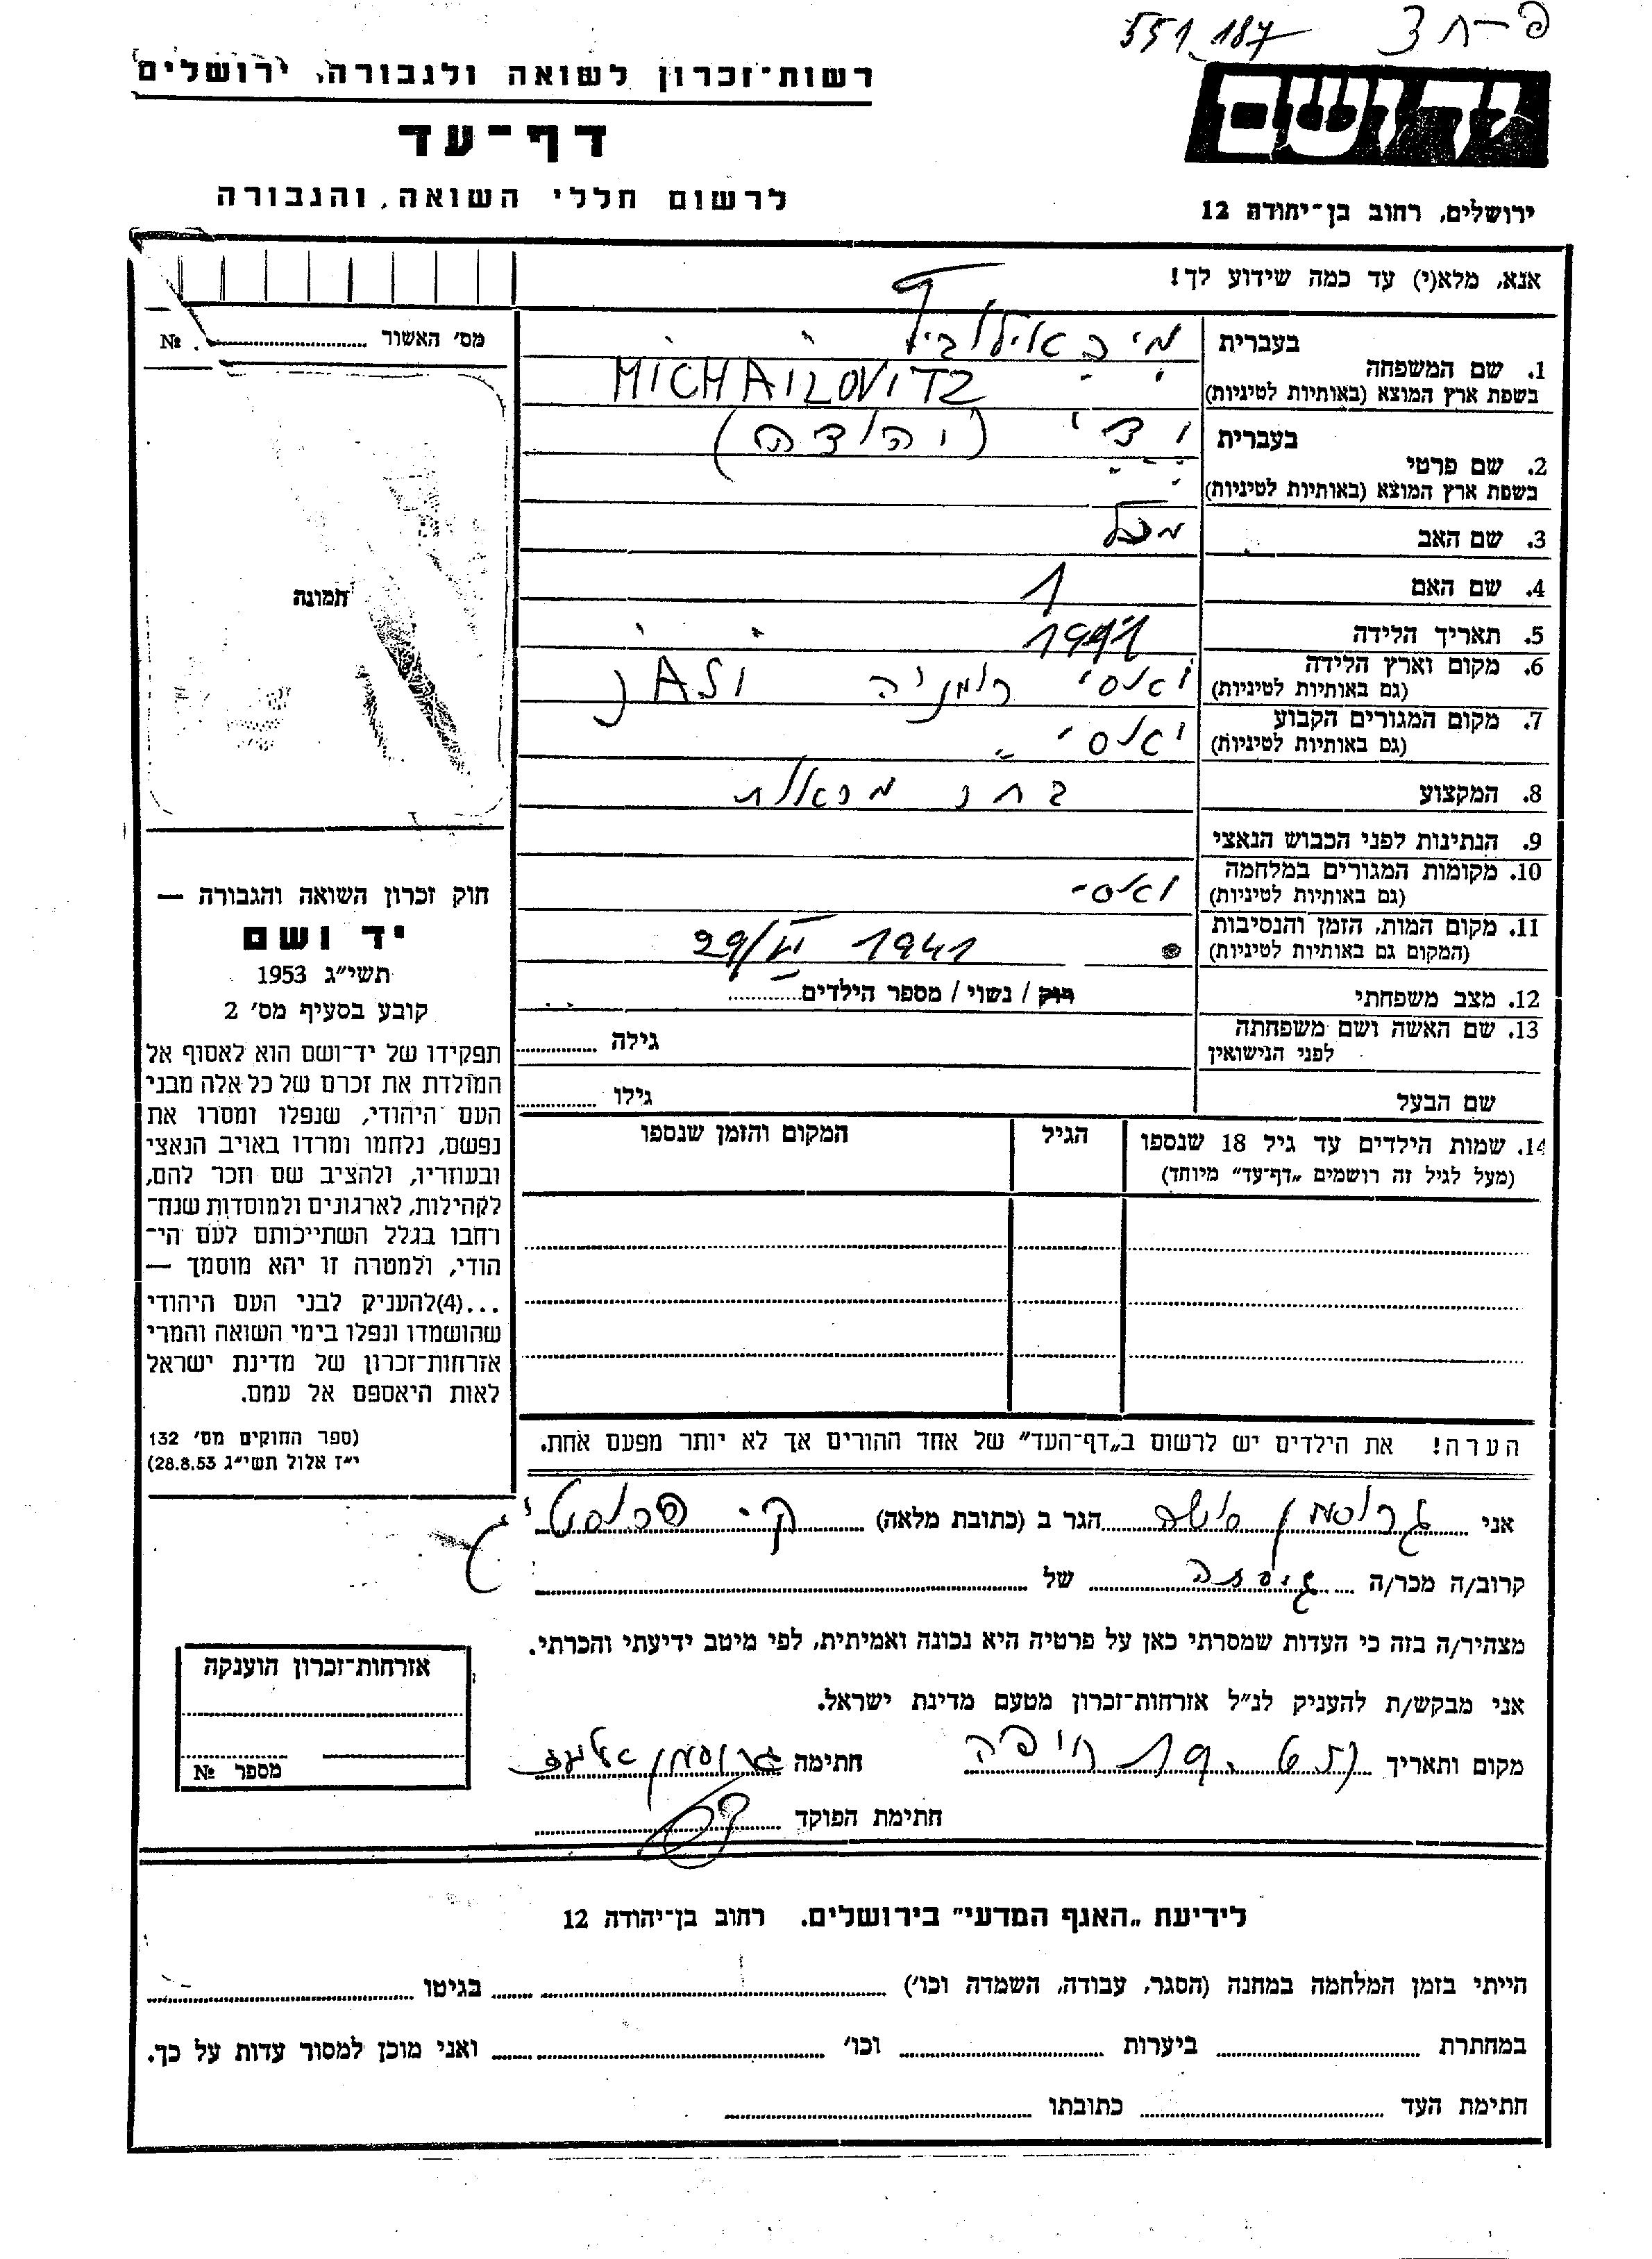 551_187
רשות־זכרון לשואה ולגבורה, ירושלים
דף־עד
לרשום חללי השואה והגבורה
ידושם
ירושלים, רחוב בן־יהודה 12
אנא, מלא(י) עד כמה שידוע לך!
מס׳ האשור № 
1. שם המשפחה בעברית מיכאילוביץ
בשפת ארץ המוצא (באותיות לטיניות) MICHAILOVITZ
2. שם פרטי בעברית (יהודה)
בשפת ארץ המוצא (באותיות לטיניות)
3. שם האב
4. שם האם
5. תאריך הלידה
6. מקום וארץ הלידה יאסי רומניה JASI
(גם באותיות לטיניות)
7. מקום המגורים הקבוע יאסי
(גם באותיות לטיניות)
8. המקצוע
9. הנתינות לפני הכבוש הנאצי
10. מקומות המגורים במלחמה יאסי
(גם באותיות לטיניות)
11. מקום המות, הזמן והנסיבות 29/VI 1941
(המקום גם באותיות לטיניות)
12. מצב משפחתי רוק / נשוי / מספר הילדים
13. שם האשה ושם משפחתה גילה
לפני הנישואין
שם הבעל גילו
תמונה
חוק זכרון השואה והגבורה —
יד ושם
תשי״ג 1953
קובע בסעיף מס׳ 2
תפקידו של יד־ושם הוא לאסוף אל
המולדת את זכרם של כל אלה מבני
העם היהודי, שנפלו ומסרו את
נפשם, נלחמו ומרדו באויב הנאצי
ובעוזריו, ולהציב שם וזכר להם,
לקהילות, לארגונים ולמוסדות שנח־
רחבו בגלל השתייכותם לעם הי־
הודי, ולמטרה זו יהא מוסמך —
...(4)להעניק לבני העם היהודי
שהושמדו ונפלו בימי השואה והמרי
אזרחות־זכרון של מדינת ישראל
לאות היאספם אל עמם.
(ספר החוקים מס׳ 132
י״ז אלול תשי״ג 28.8.53)
14. שמות הילדים עד גיל 18 שנספו הגיל המקום והזמן שנספו
(מעל לגיל זה רושמים „דף־עד״ מיוחד)
הערה! את הילדים יש לרשום ב„דף־העד״ של אחד ההורים אך לא יותר מפעם אחת.
אני גרוסמן הגר ב (כתובת מלאה) ק.
קרוב/ה מכר/ה גיסה של
מצהיר/ה בזה כי העדות שמסרתי כאן על פרטיה היא נכונה ואמיתית, לפי מיטב ידיעתי והכרתי.
אני מבקש/ת להעניק לנ״ל אזרחות־זכרון מטעם מדינת ישראל.
מקום ותאריך חיפה חתימה גרוסמן
חתימת הפוקד
אזרחות־זכרון הוענקה
מספר №
לידיעת „האגף המדעי״ בירושלים. רחוב בן־יהודה 12
הייתי בזמן המלחמה במחנה (הסגר, עבודה, השמדה וכו׳) בגיטו
במחתרת ביערות וכו׳ ואני מוכן למסור עדות על כך.
חתימת העד כתובתו